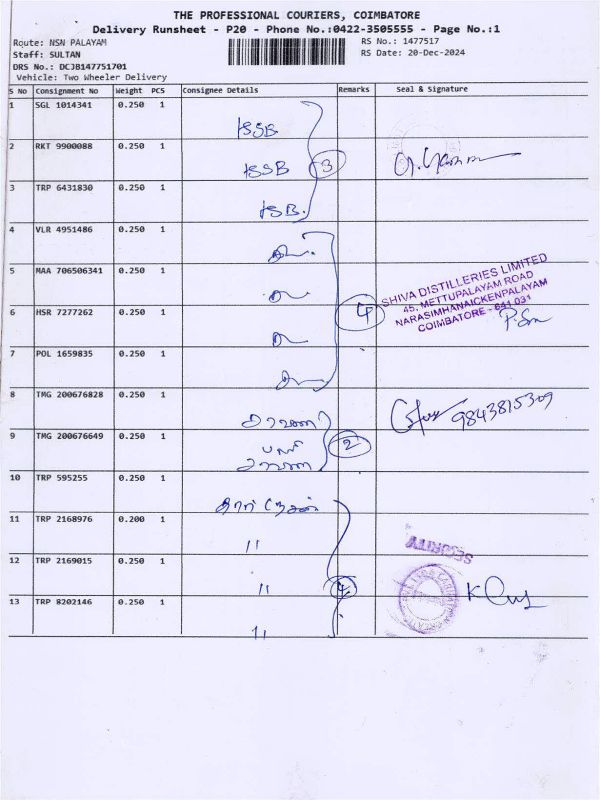 THE PROFESSIONAL COURIERS, COIMBATORE
Delivery Runsheet - P20 - Phone No.:0422-3505555 - Page No.:1
Route: NSN PALAYAM
RS No.: 1477517
Staff: SULTAN
RS Date: 20-Dec-2024
DRS No.: DCJB147751701
Vehicle: Two Wheeler Delivery
S No Consignment No Weight PCS Consignee Details Remarks Seal & Signature
1 SGL 1014341 0.250 1
2 RKT 9900088 0.250 1 3
3 TRP 6431830 0.250 1
4 VLR 4951486 0.250 1
5 MAA 706506341 0.250 1
6 HSR 7277262 0.250 1 4
SHIVA DISTILLERIES LIMITED
45, METTUPALAYAM ROAD
NARASIMHANAICKENPALAYAM
COIMBATORE - 641 031
7 POL 1659835 0.250 1
8 TMG 200676828 0.250 1 9843815309
9 TMG 200676649 0.250 1 2
10 TRP 595255 0.250 1
11 TRP 2168976 0.200 1 "
SECURITY
12 TRP 2169015 0.250 1 "
13 TRP 8202146 0.250 1 "